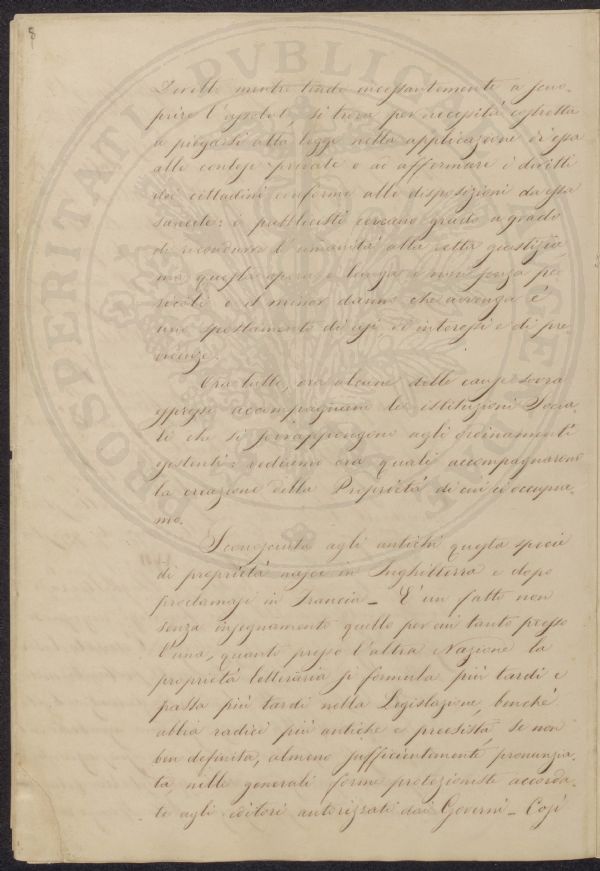 8
Diritto mentre tende incessantemente a sco-
prire l'assoluto si trova per necessità costretta
a piegarsi alla legge nella applicazione di essa
alle contese private e ad affermare i diritti
dei cittadini conforme alle disposizioni da essa
sancite: i pubblicisti cercano grado a grado
di ricondurre l'umanità alla retta giustizia
ma questa opera è lunga e non senza pe-
ricoli e il minor danno che avvenga è
uno spostamento di usi di interessi e di pre-
videnze.
Ora tutte, ora alcune delle cause sovra
espresse accompagnano le istituzioni Socia-
li che si sovrappongono agli ordinamenti
esistenti: vediamo ora quali accompagnarono
la creazione della Proprietà di cui ci occupia-
mo.
Sconosciuta agli antichi questa specie
di proprietà nasce in Inghilterra e dopo
proclamasi in Francia _ È un fatto non
senza insegnamento quello per cui tanto presso
l'una, quanto presso l'altra Nazione la
proprietà letteraria si formula più tardi e
passa più tardi nella Legislazione, benchè
abbia radici più antiche e preesista, se non
ben definita, almeno sufficientemente pronunzia-
ta nelle generali forme protezioniste accorda-
te agli editori autorizzati dai Governi _ Così
PROSPERITATI PUBLICAE